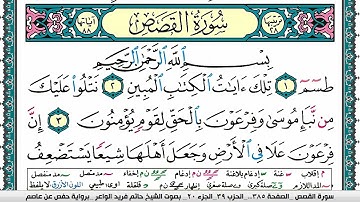 سُورَةُ القَصَصِ
بِسْمِ ٱللَّهِ ٱلرَّحْمَٰنِ ٱلرَّحِيمِ
طسٓمٓ ١ تِلْكَ ءَايَٰتُ ٱلْكِتَٰبِ ٱلْمُبِينِ ٢ نَتْلُوا۟ عَلَيْكَ
مِن نَّبَإِ مُوسَىٰ وَفِرْعَوْنَ بِٱلْحَقِّ لِقَوْمٍ يُؤْمِنُونَ ٣ إِنَّ
فِرْعَوْنَ عَلَا فِى ٱلْأَرْضِ وَجَعَلَ أَهْلَهَا شِيَعًا يَسْتَضْعِفُ
سورة القصص - الصفحة ٣٨٥ - الحزب ٣٩ - الجزء ٢٠ - بصوت الشيخ حاتم فريد الواعر - برواية حفص عن عاصم